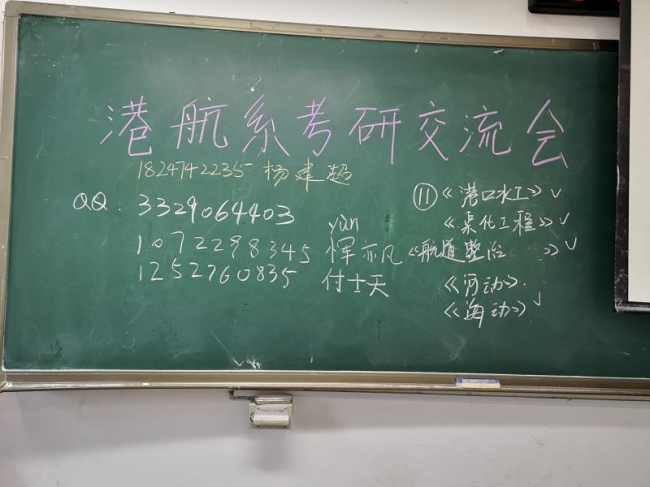 港航系考研交流会
1824742235 杨建超
QQ: 3329064403
yùn
1072298345 恽亦凡
1252760835 付士天
⑪《港口水工》✓
《渠化工程》✓
《航道整治 》✓
《河动》.
《海动》✓